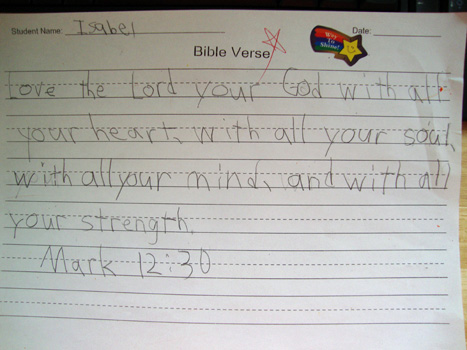 Student Name: Isabel Date:
Way To Shine!
Bible Verse
Love the Lord your God with all
your heart, with all your soul,
with all your mind, and with all
your strength.
Mark 12:30